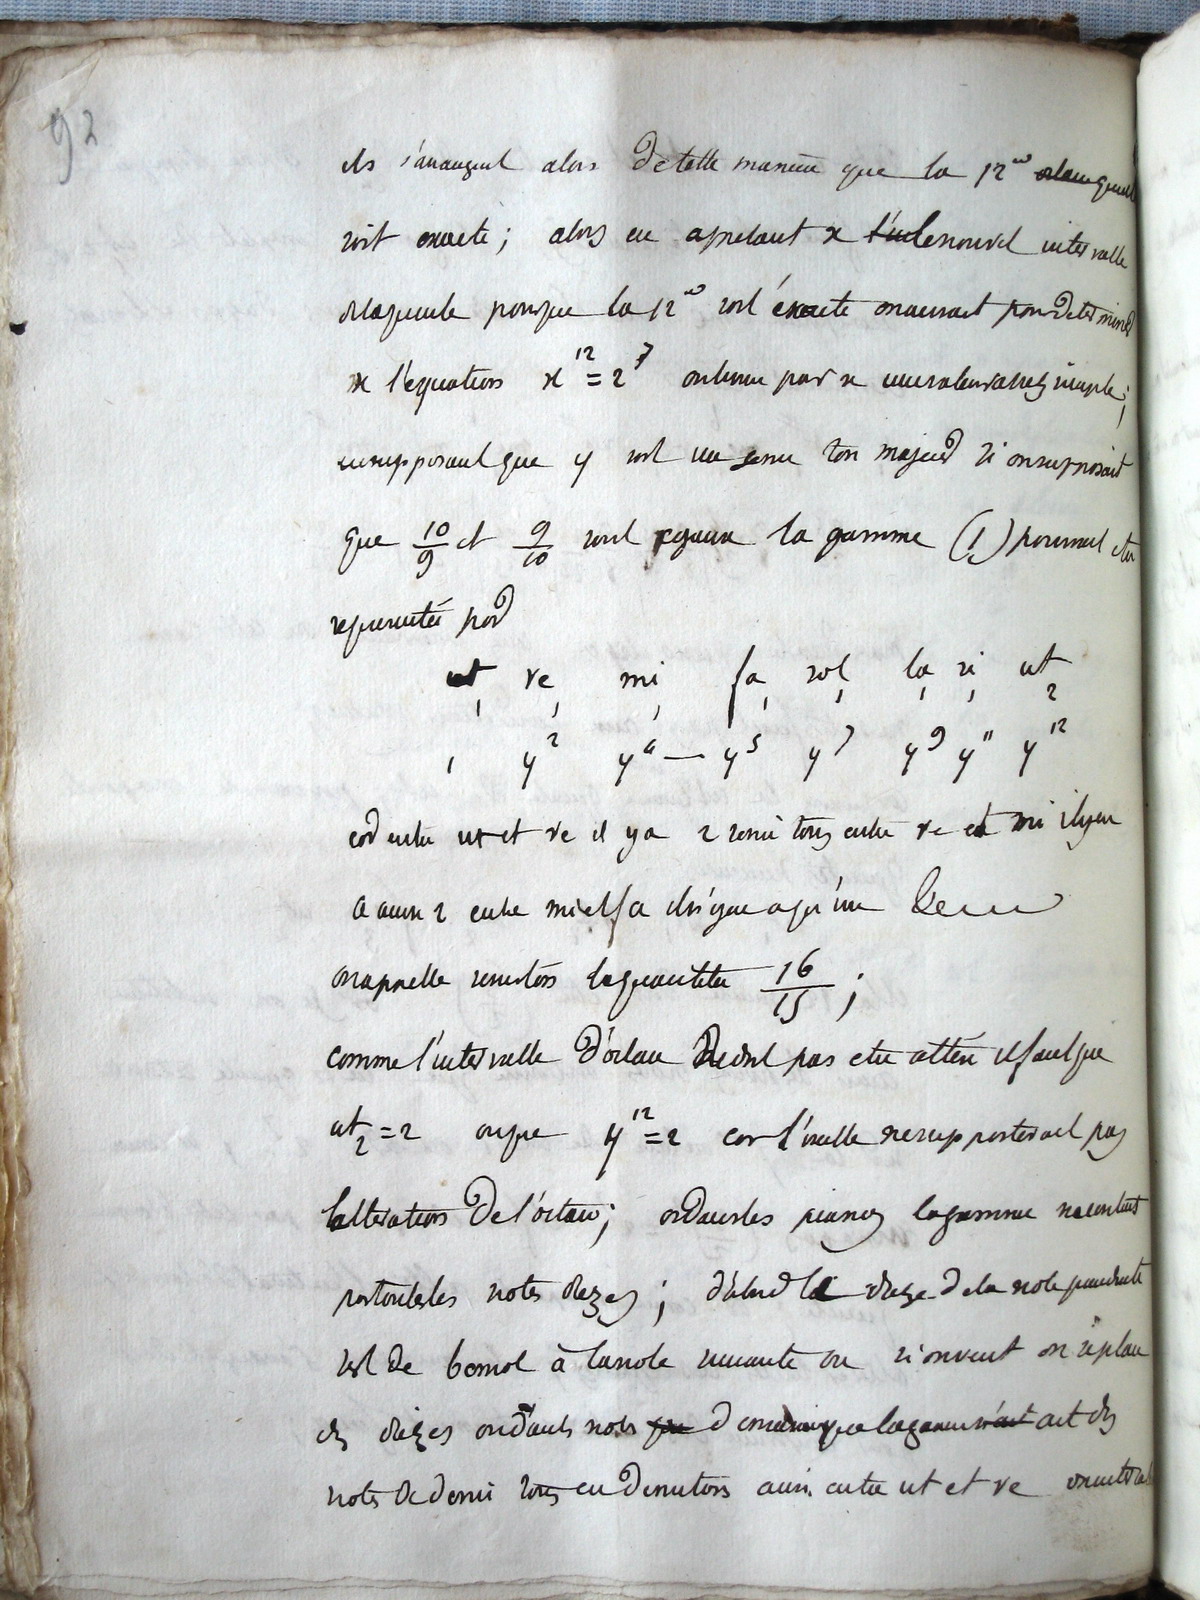 92
ils s'arrangent alors de telle maniere que la 12me quinte
soit exacte; alors en appelant x le nouvel intervalle
de quinte pour que la 12me soit éxacte on aurait pour determiner
x l'equation x^12 = 2^7 on trouve par x une valeur assez simple;
en supposant que y soit un semi ton majeur si on supposait
que 10/9 et 9/10 sont egaux la gamme (1) pourrait etre
representée par
ut1 re1 mi1 fa1 sol1 la1 si1 ut2
1 y^2 y^4 — y^5 y^7 y^9 y^11 y^12
car entre ut et re il y a 2 semi tons entre re et mi il y en
a aussi 2 entre mi et fa il n'y en a qu'un
on appelle semi tons la quantite 16/15;
comme l'intervalle d'octave ne doit pas etre altéré il faut que
ut2 = 2 ou que y^12 = 2 car l'oreille ne supporterait pas
l'alteration de l'octave; or dans les pianos la gamme ne contient
pas toutes les notes diezes; d'abord le dieze de la note precedente
sert de bemol à la note suivante ou si on veut on remplace
des diezes ont des
notes de demi tons en demi tons ainsi entre ut et re